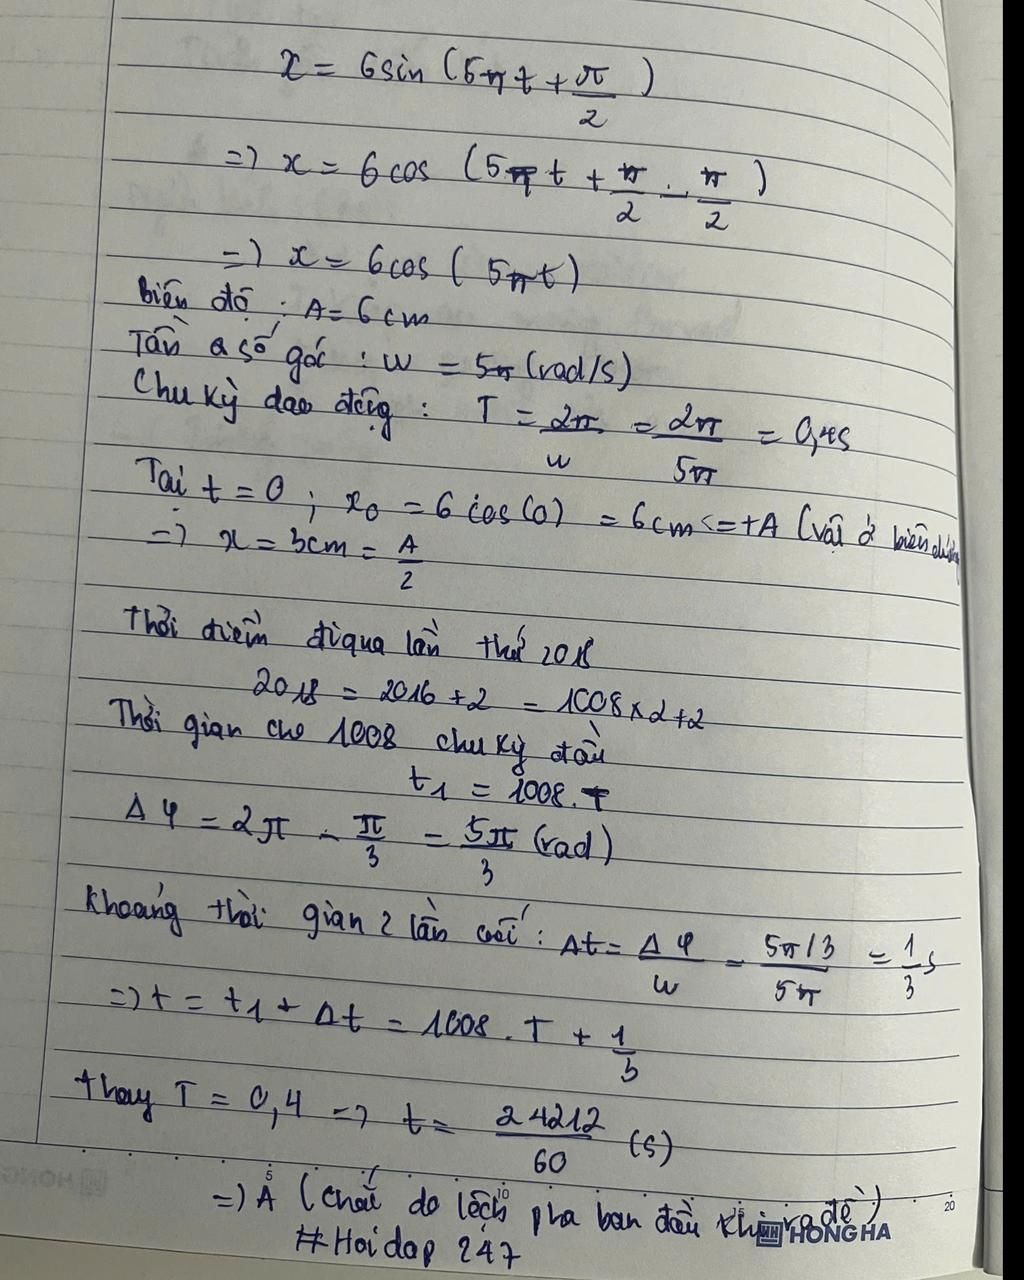 x = 6 sin (5πt + π/2)
=> x = 6 cos (5πt + π/2 - π/2)
=> x = 6 cos (5πt)
Biên độ : A = 6 cm
Tần số góc : w = 5π (rad/s)
Chu kỳ dao động : T = 2π/w = 2π/5π = 0,4s
Tại t = 0 ; x₀ = 6 cos(0) = 6 cm <=+A (vật ở biên dương
=> x = 3cm = A/2
thời điểm đi qua lần thứ 2018
2018 = 2016 + 2 = 1008 x 2 + 2
Thời gian cho 1008 chu kỳ đầu
t₁ = 1008.T
Δφ = 2π - π/3 = 5π/3 (rad)
Khoảng thời gian 2 lần cuối : Δt = Δφ/w = 5π/3/5π = 1/3 s
=> t = t₁ + Δt = 1008 . T + 1/3
thay T = 0,4 => t = 24212/60 (s)
=> A (chắc do lệch pha ban đầu khi ra đề)
# Hoidap 247
HONG HA
5 10 15 20